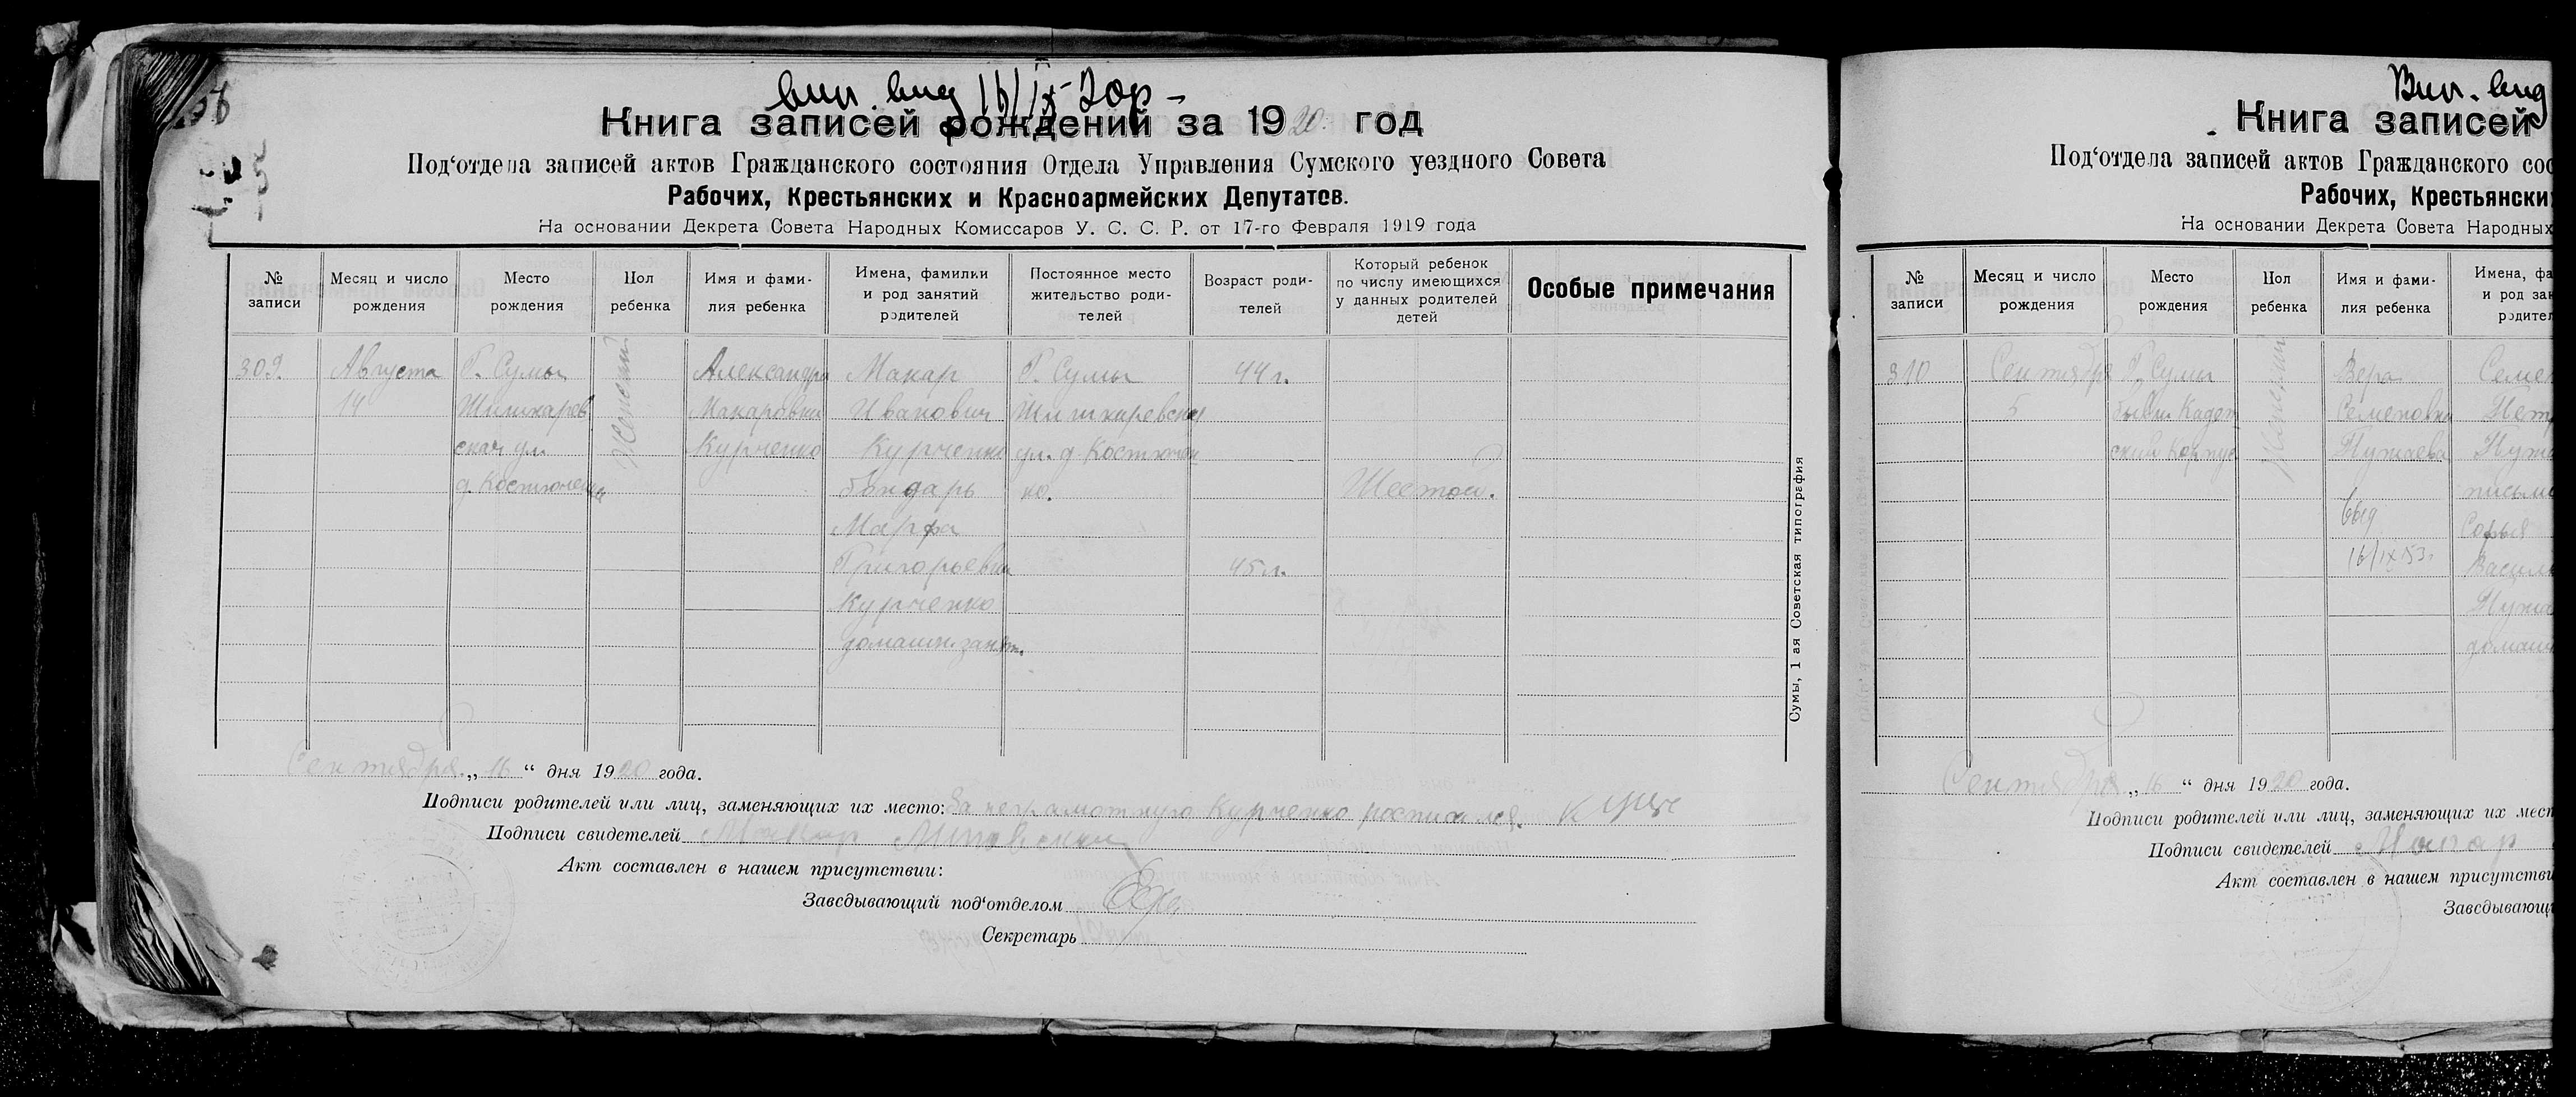 вип. вид 16/IX-20р-
Книга записей рождений за 1920. год
Под‘отдела записей актов Гражданского состояния Отдела Управления Сумского уездного Совета
Рабочих, Крестьянских и Красноармейских Депутатов.
На основании Декрета Совета Народных Комиссаров У. С. С. Р. от 17-го Февраля 1919 года
№ записи
Месяц и число рождения
Место рождения
Пол ребенка
Имя и фами-
лия ребенка
Имена, фамилии
и род занятий
родителей
Постоянное место
жительство роди-
телей
Возраст роди-
телей
Который ребенок
по числу имеющихся
у данных родителей
детей
Особые примечания
309.
Августа
14
Г. Сумы
Шишкарев
ская ул.
Женский
Александра
Макаровна
Курченко
Макар
Иванович
Курченко
бондарь
Марфа
Григорьевна
Курченко
домашн. занят.
Г. Сумы
Шишкаревская
ул. д. Костючен
ко.
44 г.
45 г.
Шестой.
Сумы, 1 ая Советская типография
Сентября „ 16 “ дня 1920 года.
Подписи родителей или лиц, заменяющих их место: За неграмотную Курченко росписался.
Подписи свидетелей Макар
Акт составлен в нашем присутствии:
Заведывающий под‘отделом
Секретарь
Вип. вид
Книга записей
Под‘отдела записей актов Гражданского сос
Рабочих, Крестьянски
На основании Декрета Совета Народных
№ записи
Месяц и число рождения
Место рождения
Пол ребенка
Имя и фами-
лия ребенка
Имена, фа
и род зан
родител
310
Сентября
5
Г. Сумы
бывш. Кадет
ский Корпус
Женский
Вера
Семеновна
вид
16/IX 53г
Семен
Петр
письмо
Софья
Василь
домашн
Сентября „ 16 “ дня 1920 года.
Подписи родителей или лиц, заменяющих их мест
Подписи свидетелей Макар
Акт составлен в нашем присутстви
Заведывающи